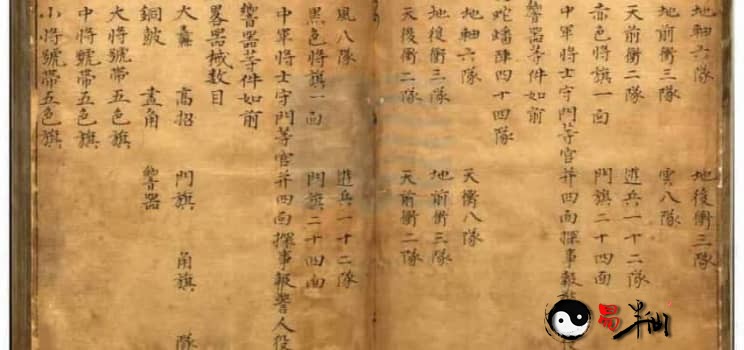 地軸六隊 地後衝三隊
地前衝三隊 雲八隊
天前衝二隊 遊兵一十二隊
赤色將旗一面 門旗二十四面
中軍將士守門等官并四面探事報
響器等件如前
蛇蟠陣四十四隊
地軸六隊 天衝八隊
地後衝三隊 地前衝三隊
天後衝二隊 天前衝二隊
風八隊 遊兵一十二隊
黑色將旗一面 門旗二十四面
中軍將士守門等官并四面探事報警人役
響器等件如前
畧器械数目
大纛 高招 門旗 角旗 隊
銅鈸 畫角 響器
大將號帶五色旗
中將號帶五色旗
小將號帶五色旗
易半仙